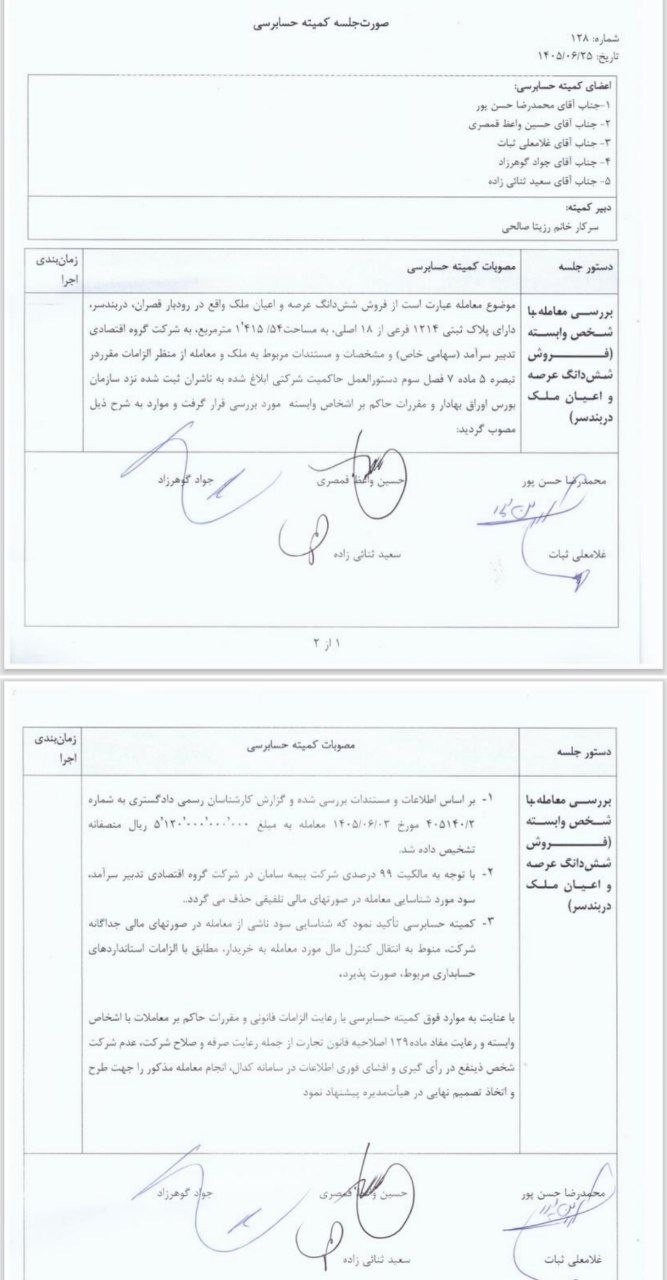 صورت‌جلسه کمیته حسابرسی
شماره: ۱۲۸
تاریخ: ۱۴۰۵/۰۶/۲۵
اعضای کمیته حسابرسی:
۱-جناب آقای محمدرضا حسن پور
۲- جناب آقای حسین واعظ قمصری
۳- جناب آقای غلامعلی ثبات
۴- جناب آقای جواد گوهرزاد
۵- جناب آقای سعید ثنائی زاده
دبیر کمیته:
سرکار خانم رزیتا صالحی
دستور جلسه
مصوبات کمیته حسابرسی
زمان‌بندی
اجرا
بررسی معامله با
شخص وابسته
(فروش
شش‌دانگ عرصه
و اعیان ملک
دربندسر)
موضوع معامله عبارت است از فروش شش‌دانگ عرصه و اعیان ملک واقع در رودبار قصران، دربندسر،
دارای پلاک ثبتی ۱۲۱۴ فرعی از ۱۸ اصلی، به مساحت۵۴/ ۱٬۴۱۵ مترمربع، به شرکت گروه اقتصادی
تدبیر سرآمد (سهامی خاص) و مشخصات و مستندات مربوط به ملک و معامله از منظر الزامات مقرردر
تبصره ۵ ماده ۷ فصل سوم دستورالعمل حاکمیت شرکتی ابلاغ شده به ناشران ثبت شده نزد سازمان
بورس اوراق بهادار و مقررات حاکم بر اشخاص وابسته مورد بررسی قرار گرفت و موارد به شرح ذیل
مصوب گردید:
محمدرضا حسن پور
حسین واعظ قمصری
جواد گوهرزاد
غلامعلی ثبات
سعید ثنائی زاده
۱ از ۲
دستور جلسه
مصوبات کمیته حسابرسی
زمان‌بندی
اجرا
بررسی معامله با
شخص وابسته
(فروش
شش‌دانگ عرصه
و اعیان ملک
دربندسر)
۱- بر اساس اطلاعات و مستندات بررسی شده و گزارش کارشناسان رسمی دادگستری به شماره
۴۰۵۱۴۰/۲ مورخ ۱۴۰۵/۰۶/۰۳ معامله به مبلغ ۵٬۱۲۰٬۰۰۰٬۰۰۰٬۰۰۰ ریال منصفانه
تشخیص داده شد.
۲- با توجه به مالکیت ۹۹ درصدی شرکت بیمه سامان در شرکت گروه اقتصادی تدبیر سرآمد،
سود مورد شناسایی معامله در صورتهای مالی تلفیقی حذف می گردد..
۳- کمیته حسابرسی تأکید نمود که شناسایی سود ناشی از معامله در صورتهای مالی جداگانه
شرکت، منوط به انتقال کنترل مال مورد معامله به خریدار، مطابق با الزامات استانداردهای
حسابداری مربوط، صورت پذیرد.
با عنایت به موارد فوق کمیته حسابرسی با رعایت الزامات قانونی و مقررات حاکم بر معاملات با اشخاص
وابسته و رعایت مفاد ماده۱۲۹ اصلاحیه قانون تجارت از جمله رعایت صرفه و صلاح شرکت، عدم شرکت
شخص ذینفع در رأی گیری و افشای فوری اطلاعات در سامانه کدال، انجام معامله مذکور را جهت طرح
و اتخاذ تصمیم نهایی در هیأت‌مدیره پیشنهاد نمود
محمدرضا حسن پور
حسین واعظ قمصری
جواد گوهرزاد
غلامعلی ثبات
سعید ثنائی زاده